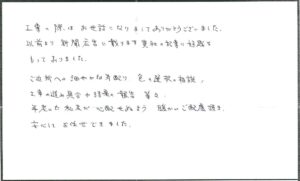 工事の際は お世話になりましてありがとうございました。
以前より 新聞広告に載ってます 御社の記事に好感を
もっておりました。
ご近所への細やかな手配り 色の選択の相談、
工事の進み具合や結果の報告 等々
年老いた私共が 心配せぬよう 暖かいご配慮頂き
安心して お任せできました。